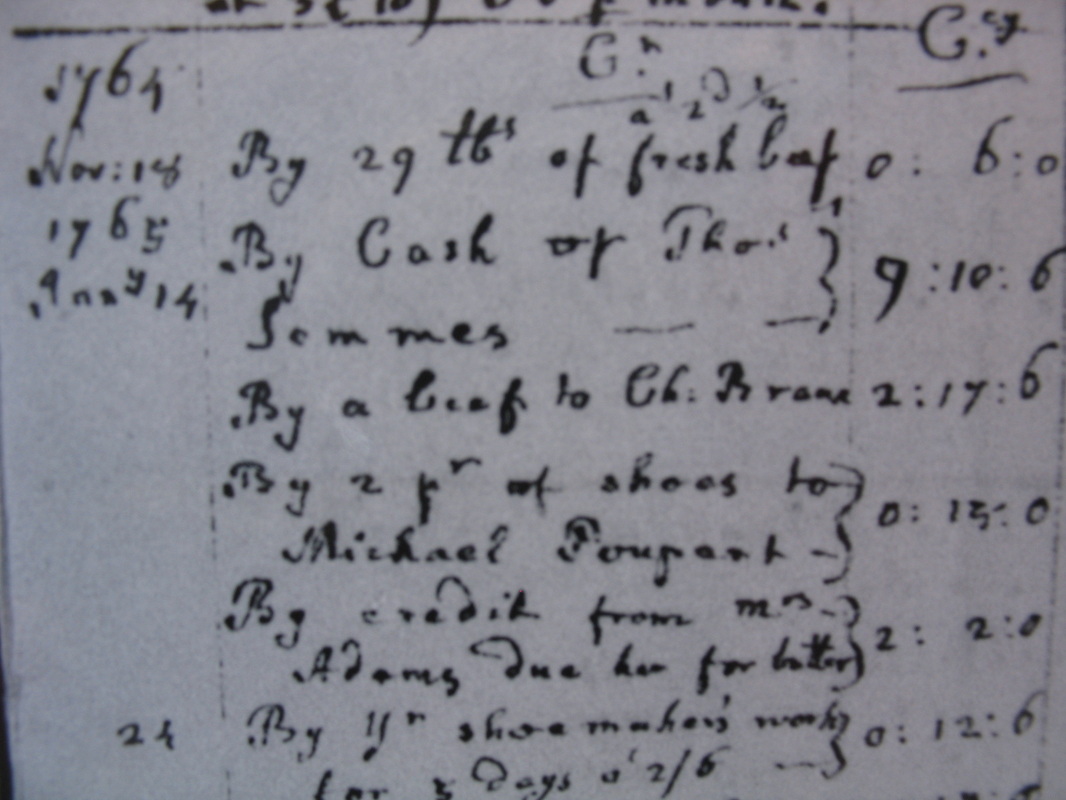 C.r C.cy
1764 a' 2 D ½
Nov: 18 By 29 lbs of fresh beef 0: 6:0
1765 By Cash of Tho.s } 9:10:6
Jany 14 Sommes — —
By a beef to Ch: Braux 2:17:6
By 2 pr of shoes to } 0: 15: 0
Michael Poupart -
By credit from mrs } 2: 2:0
Adams due her for butter
24 By yr shoe maker's work } 0: 12:6
for 5 days a' 2/6 —